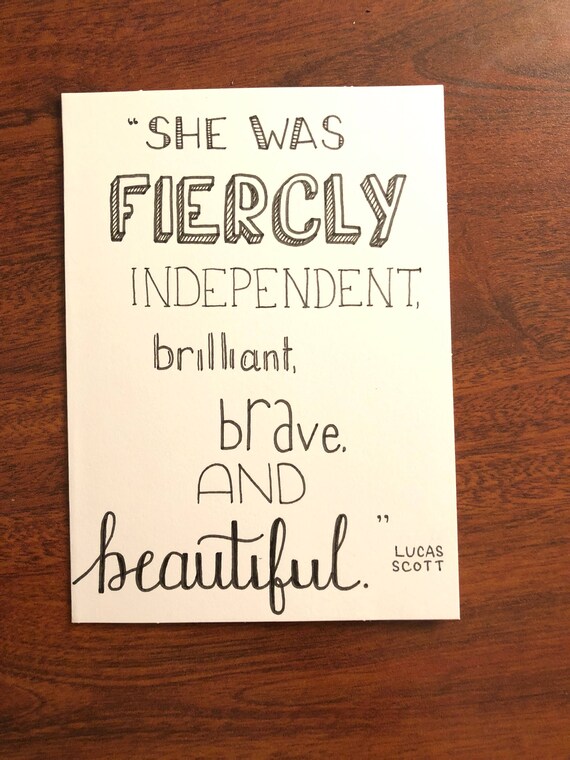 “SHE WAS
FIERCLY
INDEPENDENT,
brilliant,
brave,
AND
beautiful.”
LUCAS
SCOTT